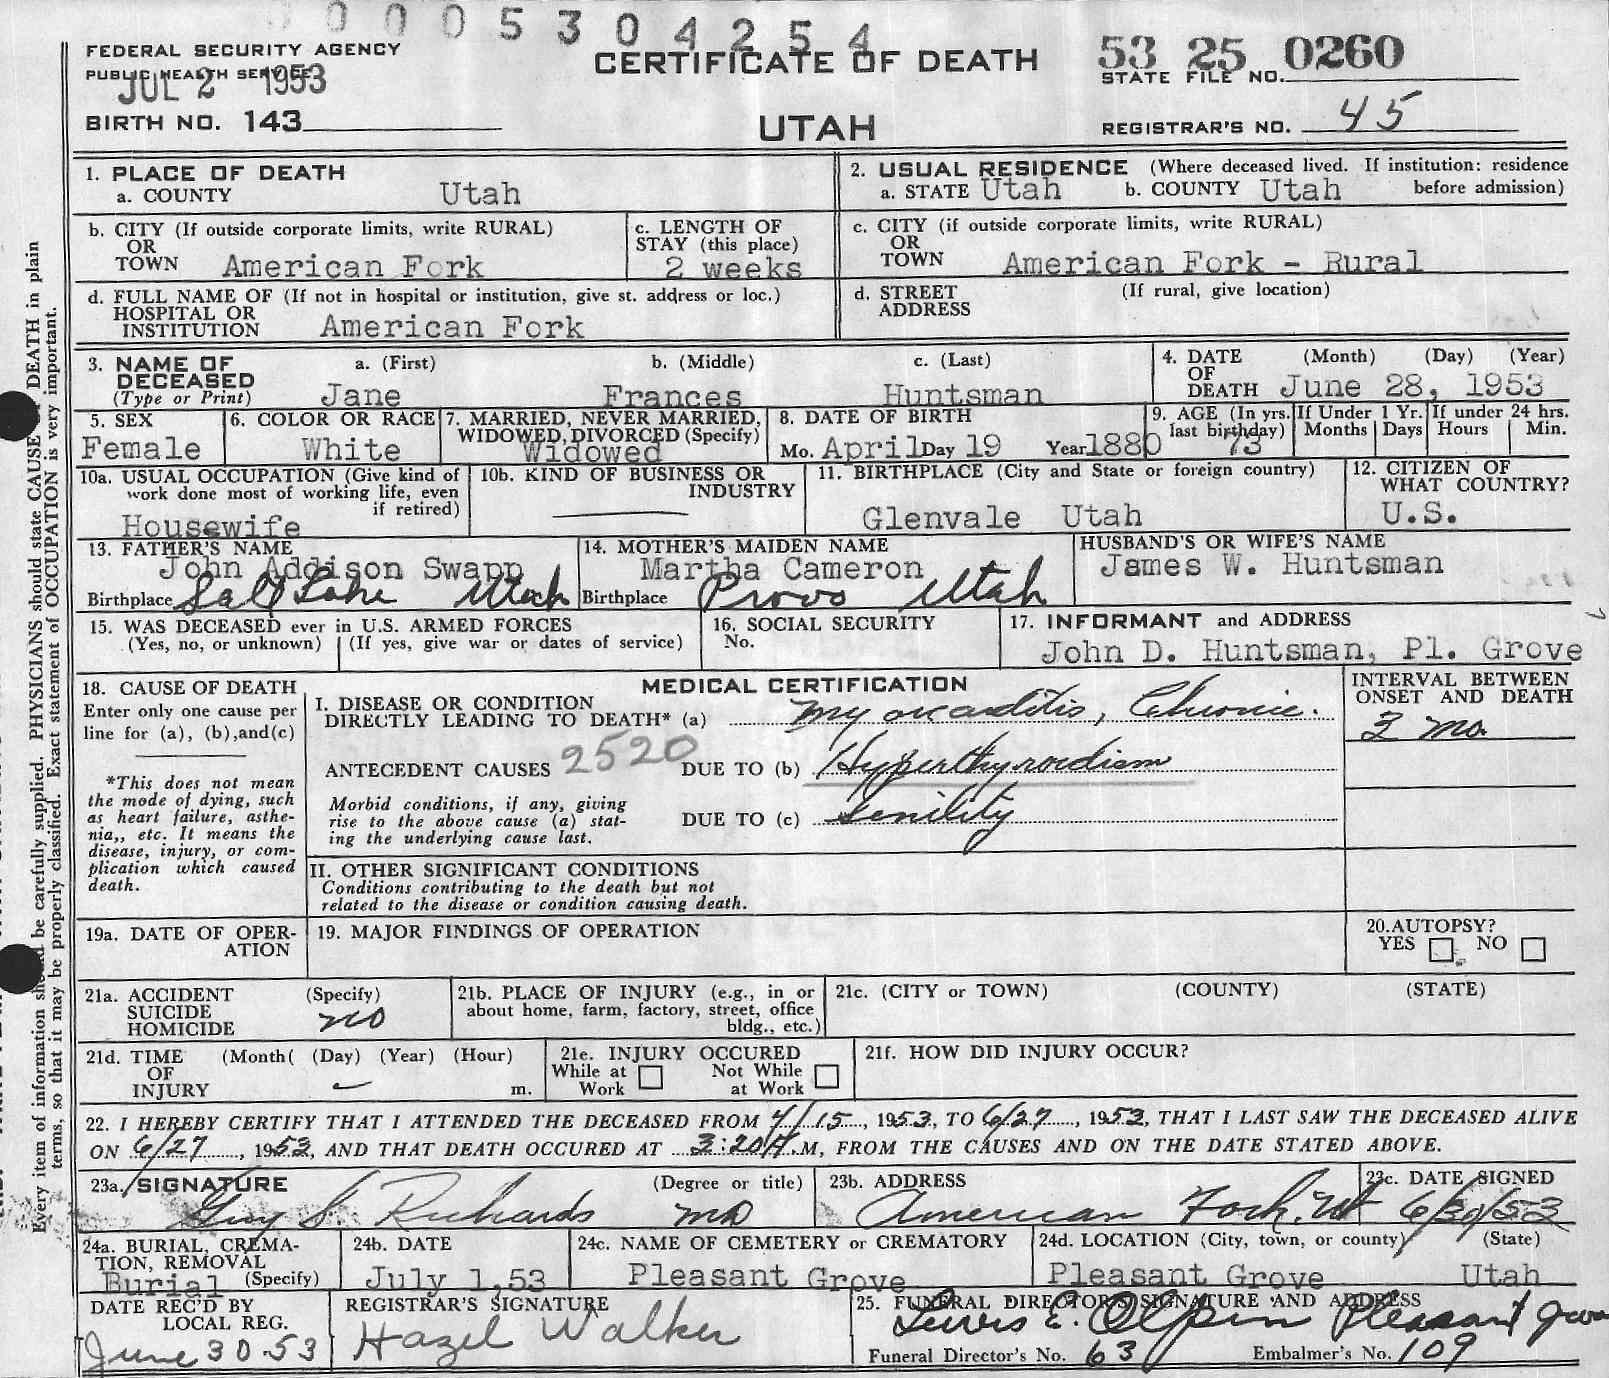 0 0 0 5 3 0 4 2 5 4
FEDERAL SECURITY AGENCY
PUBLIC HEALTH SERVICE
JUL 2 1953
CERTIFICATE OF DEATH
53 25 0260
STATE FILE NO.
BIRTH NO. 143
UTAH
REGISTRAR'S NO. 45
1. PLACE OF DEATH
a. COUNTY Utah
2. USUAL RESIDENCE (Where deceased lived. If institution: residence before admission)
a. STATE Utah b. COUNTY Utah
b. CITY (If outside corporate limits, write RURAL)
OR
TOWN American Fork
c. LENGTH OF
STAY (this place)
2 weeks
c. CITY (if outside corporate limits, write RURAL)
OR
TOWN American Fork - Rural
d. FULL NAME OF (If not in hospital or institution, give st. address or loc.)
HOSPITAL OR
INSTITUTION American Fork
d. STREET (If rural, give location)
ADDRESS
3. NAME OF DECEASED
(Type or Print)
a. (First) b. (Middle) c. (Last)
Jane Frances Huntsman
4. DATE OF DEATH (Month) (Day) (Year)
June 28, 1953
5. SEX
Female
6. COLOR OR RACE
White
7. MARRIED, NEVER MARRIED,
WIDOWED, DIVORCED (Specify)
Widowed
8. DATE OF BIRTH
Mo. April Day 19 Year 1880
9. AGE (In yrs. last birthday)
73
If Under 1 Yr.
Months Days
If under 24 hrs.
Hours Min.
10a. USUAL OCCUPATION (Give kind of
work done most of working life, even
if retired)
Housewife
10b. KIND OF BUSINESS OR
INDUSTRY
11. BIRTHPLACE (City and State or foreign country)
Glenvale Utah
12. CITIZEN OF
WHAT COUNTRY?
U.S.
13. FATHER'S NAME
John Addison Swapp
Birthplace Salt Lake Utah
14. MOTHER'S MAIDEN NAME
Martha Cameron
Birthplace Provo Utah
HUSBAND'S OR WIFE'S NAME
James W. Huntsman
15. WAS DECEASED ever in U.S. ARMED FORCES
(Yes, no, or unknown) (If yes, give war or dates of service)
16. SOCIAL SECURITY
No.
17. INFORMANT and ADDRESS
John D. Huntsman, Pl. Grove
18. CAUSE OF DEATH
Enter only one cause per
line for (a), (b), and (c)
*This does not mean
the mode of dying, such
as heart failure, asthe-
nia,, etc. It means the
disease, injury, or com-
plication which caused
death.
MEDICAL CERTIFICATION
I. DISEASE OR CONDITION
DIRECTLY LEADING TO DEATH* (a) Myocarditis, Chronic.
ANTECEDENT CAUSES 2520 DUE TO (b) Hyperthyroidism
Morbid conditions, if any, giving
rise to the above cause (a) stat-
ing the underlying cause last.
DUE TO (c) Senility
INTERVAL BETWEEN
ONSET AND DEATH
3 mo.
II. OTHER SIGNIFICANT CONDITIONS
Conditions contributing to the death but not
related to the disease or condition causing death.
19a. DATE OF OPER-
ATION
19. MAJOR FINDINGS OF OPERATION
20. AUTOPSY?
YES NO
21a. ACCIDENT (Specify)
SUICIDE
HOMICIDE no
21b. PLACE OF INJURY (e.g., in or
about home, farm, factory, street, office
bldg., etc.)
21c. (CITY or TOWN) (COUNTY) (STATE)
21d. TIME (Month( (Day) (Year) (Hour)
OF
INJURY m.
21e. INJURY OCCURED
While at Work Not While at Work
21f. HOW DID INJURY OCCUR?
22. I HEREBY CERTIFY THAT I ATTENDED THE DECEASED FROM 4/15, 1953, TO 6/27, 1953, THAT I LAST SAW THE DECEASED ALIVE
ON 6/27, 1953, AND THAT DEATH OCCURED AT 3:20 A.M, FROM THE CAUSES AND ON THE DATE STATED ABOVE.
23a. SIGNATURE (Degree or title)
Guy S. Richards MD
23b. ADDRESS
American Fork, Ut
23c. DATE SIGNED
6/30/53
24a. BURIAL, CREMA-
TION, REMOVAL
Burial (Specify)
24b. DATE
July 1,53
24c. NAME OF CEMETERY or CREMATORY
Pleasant Grove
24d. LOCATION (City, town, or county) (State)
Pleasant Grove Utah
DATE REC'D BY
LOCAL REG.
June 30 53
REGISTRAR'S SIGNATURE
Hazel Walker
25. FUNERAL DIRECTOR'S SIGNATURE AND ADDRESS
Lewis E. Olpin Pleasant Grove
Funeral Director's No. 63 Embalmer's No. 109
Every item of information should be carefully supplied. PHYSICIANS should state CAUSE OF DEATH in plain
terms, so that it may be properly classified. Exact statement of OCCUPATION is very important.